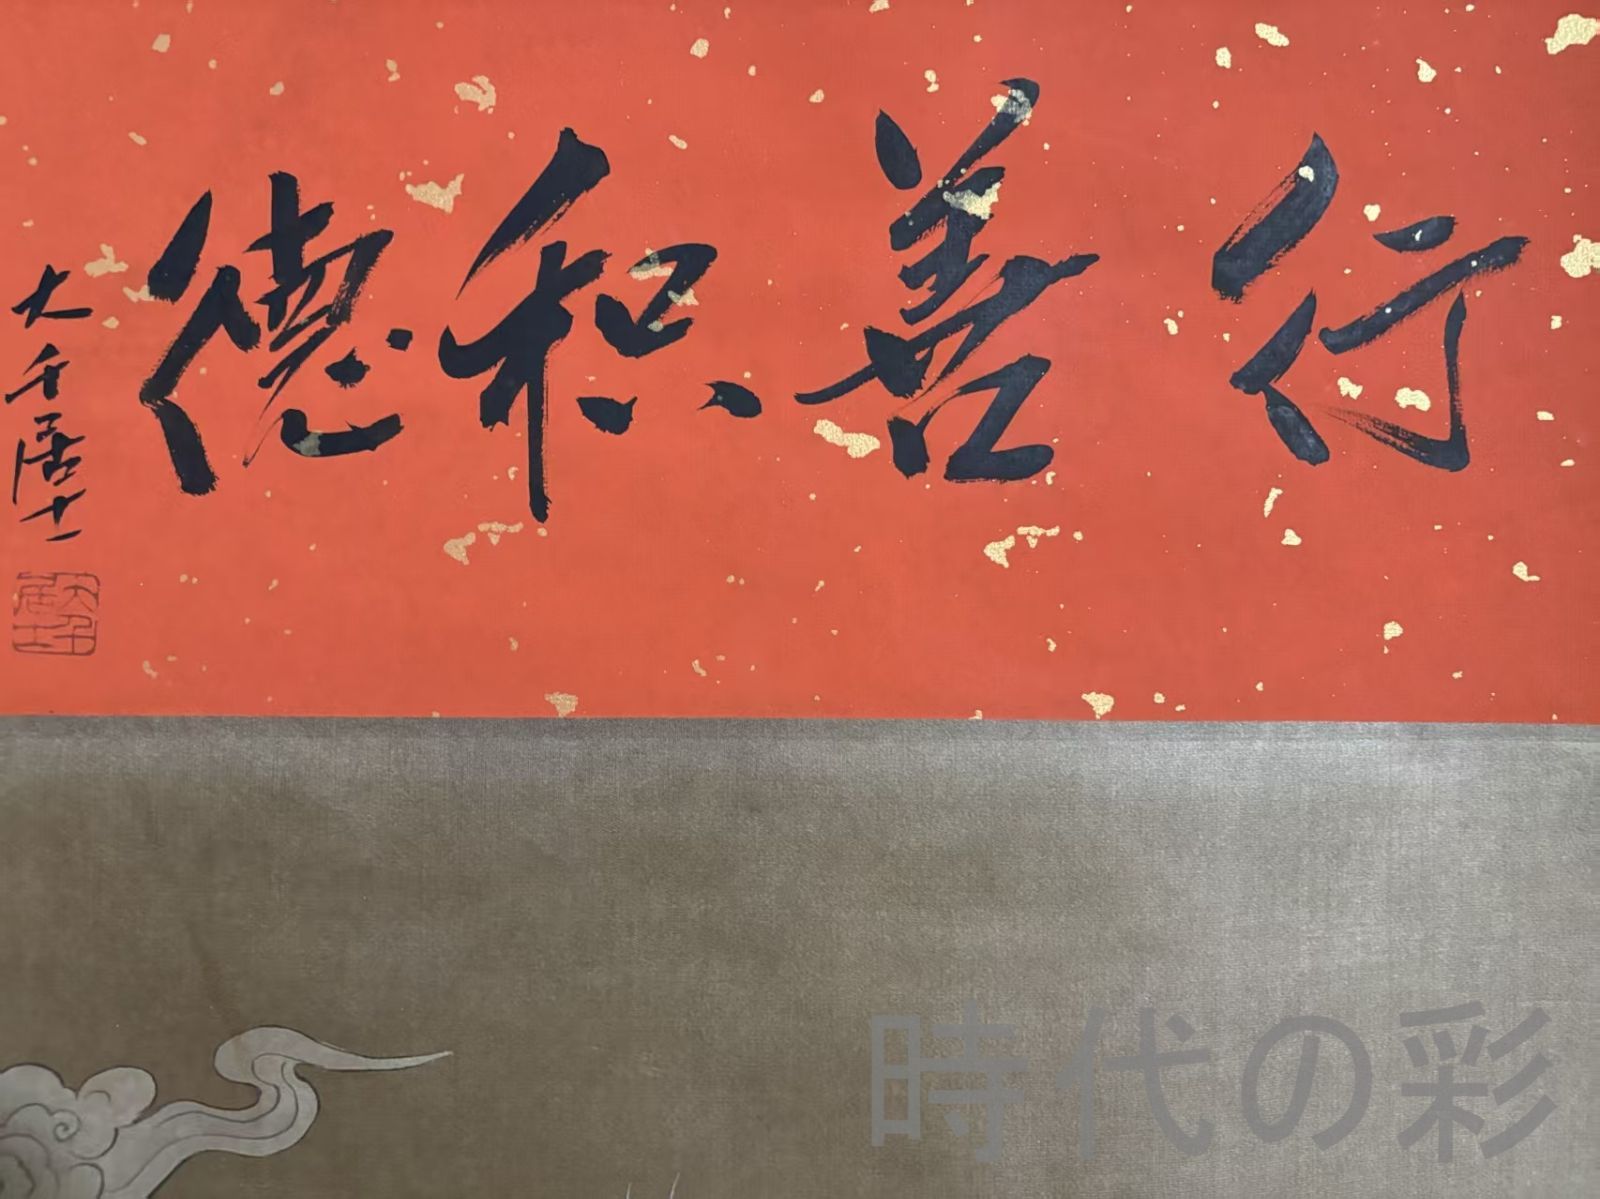 行善积德
大千居士
大千居士
時代の彩